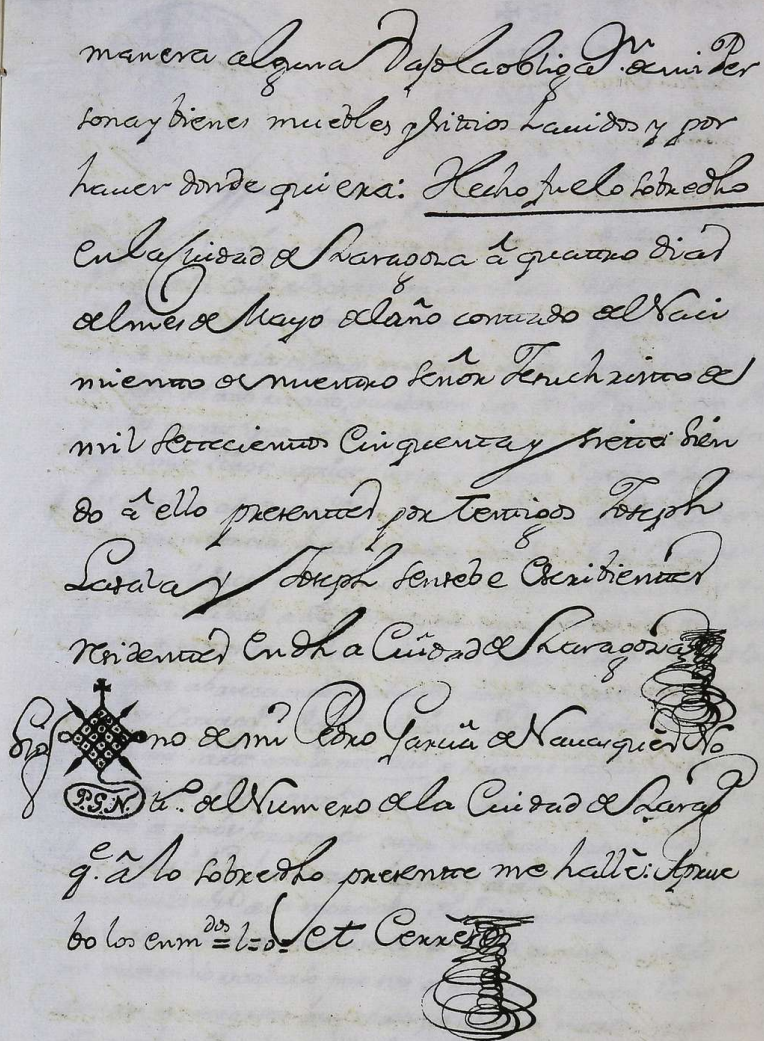 manera alguna Vajo la obliga.ⁿ de mi Per
sona y bienes muebles y sittios hauidos y por
hauer donde quiera: Hecho fue lo sobredho
en la Ciudad de Zaragoza â quattro dias
del mes de Mayo del año contado del Naci
miento de nuestro Señor Jesuchristo de
mil settecientos Cinquenta y siette: sien
do â ello presenttes por testigos Joseph
Lasala y Joseph Sensebe Escribienttes
residenttes en dha Ciudad de Zaragoza
Sig no de mi Pedro Garcia de Nauasques No
P.G.N. tt.º del Numero de la Ciudad de Zarag.ª
q.ᵉ â lo sobredho presentte me hallè: Aprue
bo los enm.ᵈᵒˢ = l = o = et Cerrè